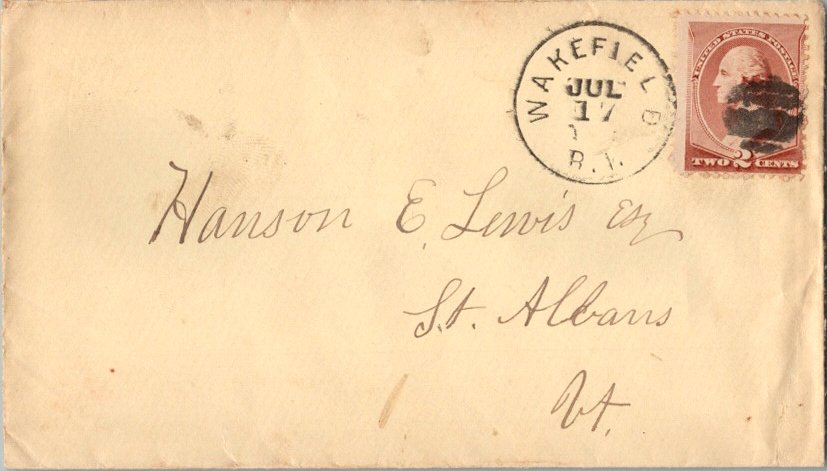 WAKEFIELD
JUL
17
R.I.
UNITED STATES POSTAGE
TWO 2 CENTS
Hanson E. Lewis Esq
St. Albans
Vt.